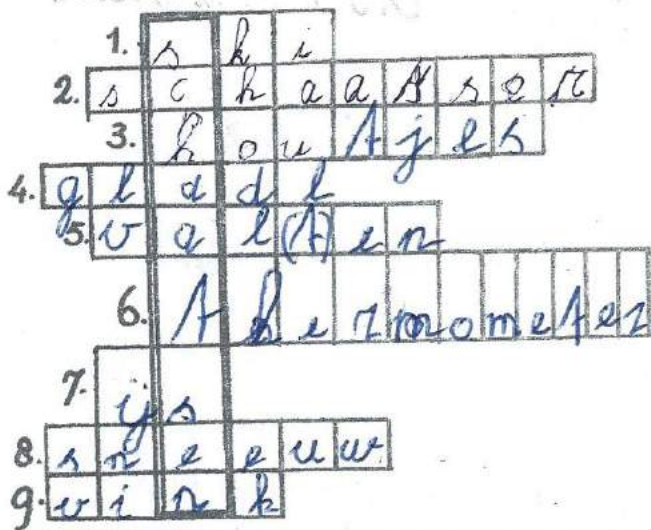 1. ski
2. schaatsen
3. houtjes
4. gladde
5. val(t)en
6. thermometer
7. ijs
8. sneeuw
9. vink